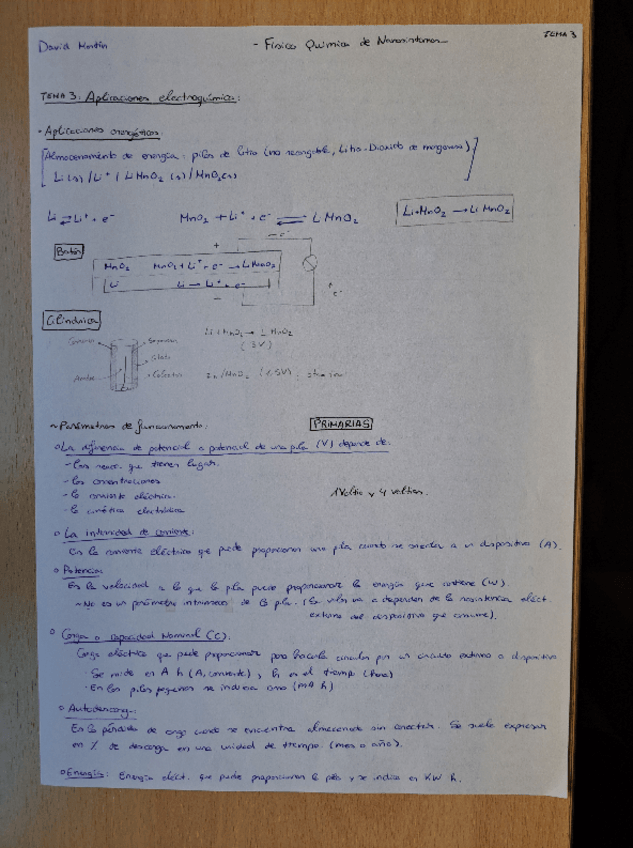 David Martín
- Físico Química de Nanosistemas
TEMA 3
TEMA 3: Aplicaciones electroquímica:
· Aplicaciones energéticas:
[Almacenamiento de energía: pilas de litio (no recargable, Litio-Dióxido de manganeso)
Li(s)/Li⁺ / LiMnO₂ (s)/MnO₂(s)]
Li ⇌ Li⁺ + e⁻
MnO₂ + Li⁺ + e⁻ ⇌ LiMnO₂
Li+MnO₂ → LiMnO₂
Botón
+
e⁻
MnO₂ MnO₂ + Li⁺ + e⁻ → LiMnO₂
Li Li → Li⁺ + e⁻
-
e⁻
Cilíndrica
Li+MnO₂ → LiMnO₂
(3V)
Separador
Ánodo
Colector
Zn/MnO₂ (1.5V)
~ Parámetros de funcionamiento:
PRIMARIAS
○ La diferencia de potencial o potencial de una pila (V) depende de:
- Las reacc. que tienen lugar.
- las concentraciones
- la corriente eléctrica.
- la cinética electródica
1 Voltio y 4 voltios.
○ La intensidad de corriente:
Es la corriente eléctrica que puede proporcionar una pila cuando se conecta a un dispositivo (A).
○ Potencia:
Es la velocidad a la que la pila puede proporcionar la energía que contiene (W)
~ No es un parámetro intrínseco de la pila. (Su valor va a depender de la resistencia eléct.
externa del dispositivo que consume).
○ Carga o capacidad Nominal (C).
Carga eléctrica que puede proporcionar para hacerla circular por un circuito externo o dispositivo
· Se mide en A h (A, corriente), h es el tiempo (hora)
· En las pilas pequeñas se indica como (mA h)
○ Autodescarga:
Es la pérdida de carga cuando se encuentra almacenada sin conectar. Se suele expresar
en % de descarga en una unidad de tiempo. (mes o año).
○ Energía: Energía eléct. que puede proporcionar la pila y se indica en KW h.